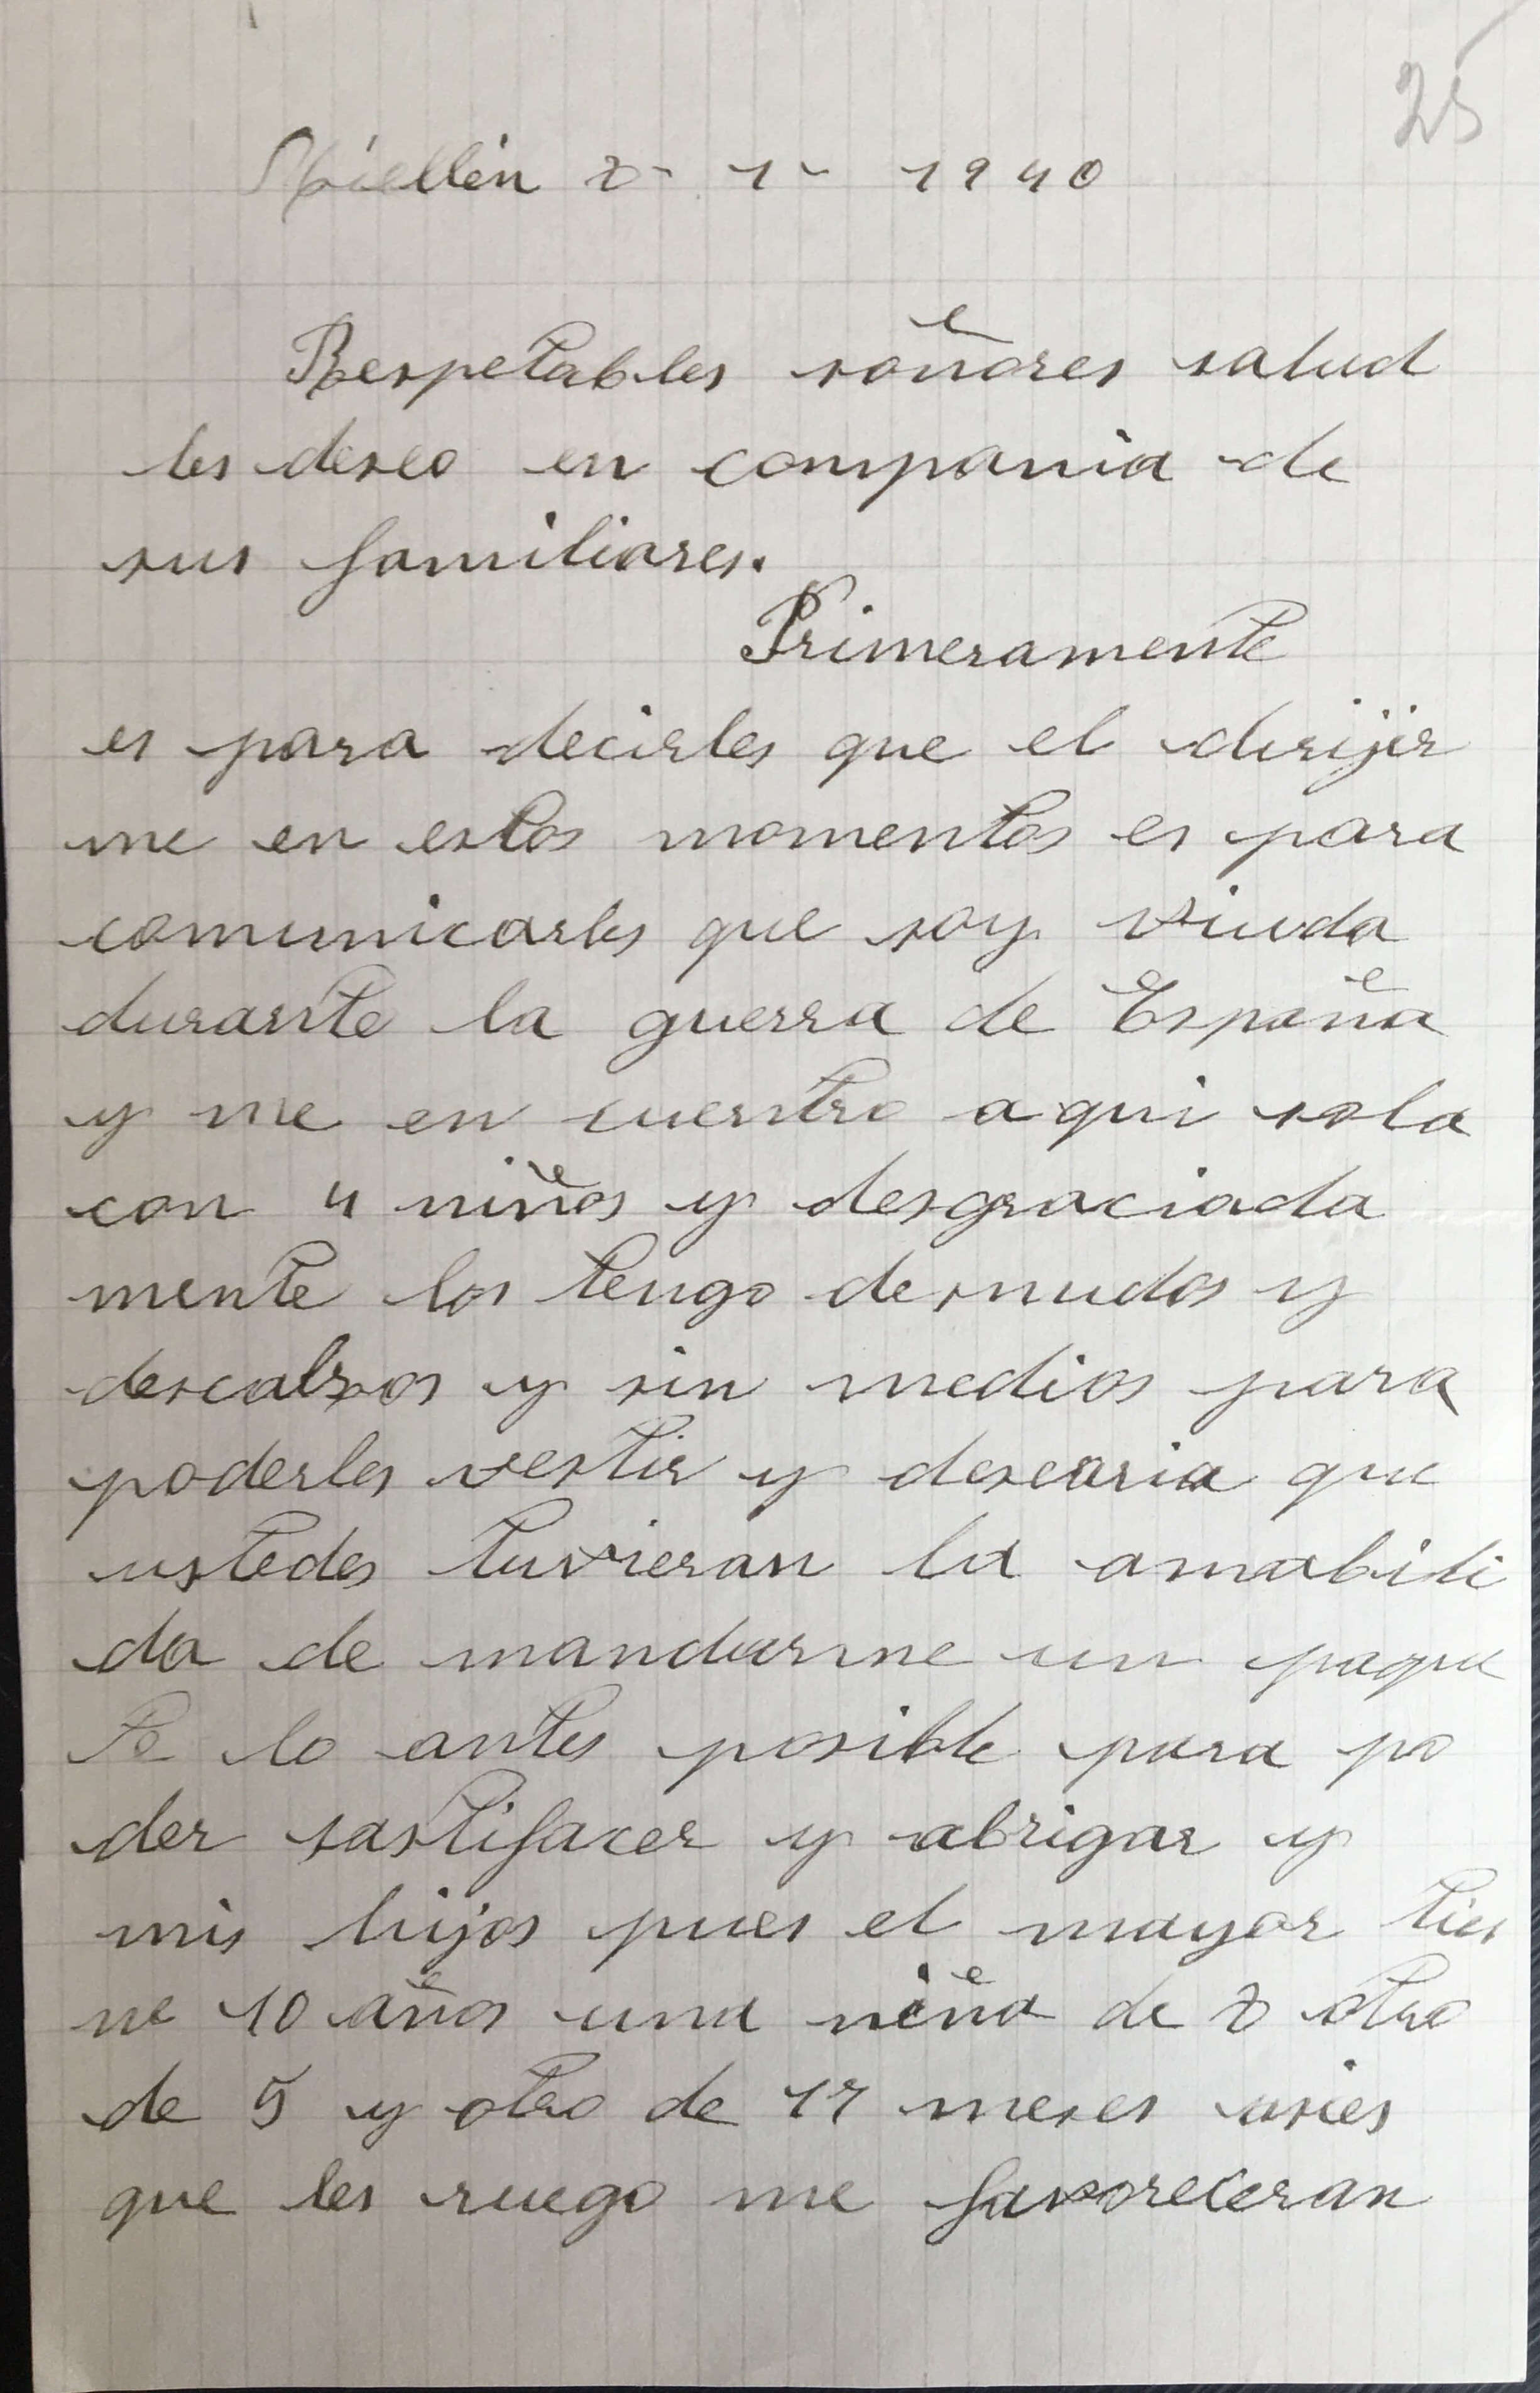 25
Miellin 8 - 1 - 1940
Respetables soñores salud
les deseo en compania de
sus familiares.
Primeramente
es para decirles que el dirijir
me en estos momentos es para
comunicarles que soy viuda
durante la guerra de España
y me en cuentro aqui sola
con 4 niños y desgraciada
mente los tengo desnudos y
descalzos y sin medios para
poderles vestir y desearia que
ustedes tuvieran la amabili
da de mandarme un paque
te lo antes posible para po
der sastifacer y abrigar y
mis hijos pues el mayor tie
ne 10 años una niña de 8 otro
de 5 y otro de 17 meses asies
que les ruego me favoreceran